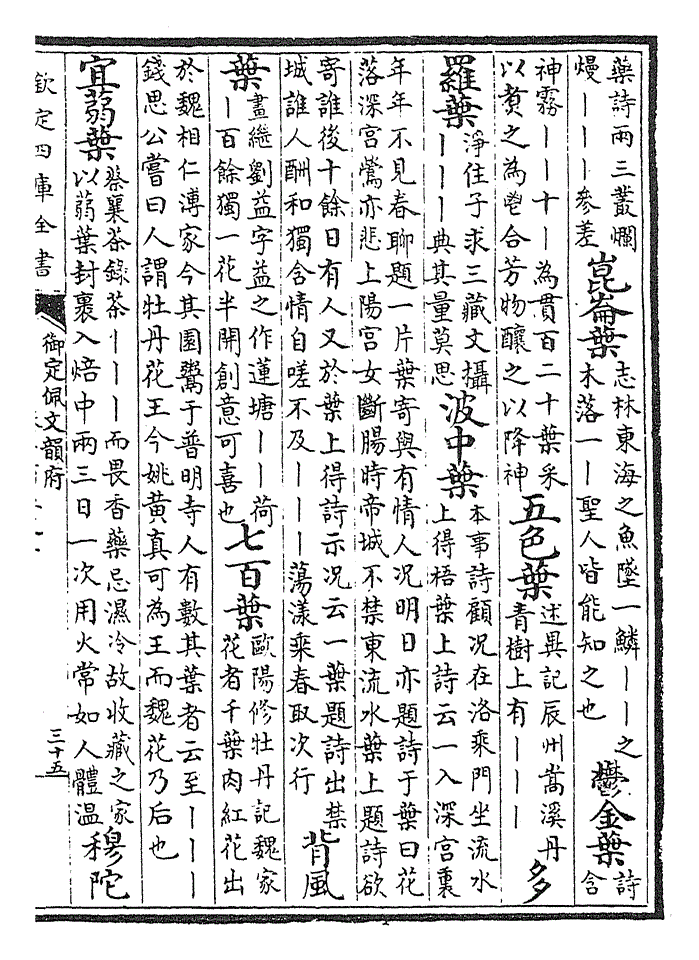 藥詩兩三叢爛
熳｜｜｜參差
崑崙葉
志林東海之魚墜一鱗｜｜之
木落一｜｜聖人皆能知之也
鬱金葉
詩
含
神霧｜｜十｜為貫百二十葉采
以煑之為鬯合芳物釀之以降神
五色葉
述異記辰州嵩溪丹
青樹上有｜｜｜
多
羅葉
淨住子求三藏文攝
｜｜｜典其量莫思
波中葉
本事詩顧况在洛乘門坐流水
上得梧葉上詩云一入深宫裏
年年不見春聊題一片葉寄與有情人况明日亦題詩于葉曰花
落深宫鶯亦悲上陽宫女斷腸時帝城不禁東流水葉上題詩欲
寄誰後十餘日有人又於葉上得詩示况云一葉題詩出禁
城誰人酬和獨含情自嗟不及｜｜｜蕩漾乘春取次行
背風
葉
畫繼劉益字益之作蓮塘｜｜荷
｜百餘獨一花半開創意可喜也
七百葉
歐陽修牡丹記魏家
花者千葉肉紅花出
於魏相仁溥家今其園鬻于普明寺人有數其葉者云至｜｜｜
錢思公嘗曰人謂牡丹花王今姚黄真可為王而魏花乃后也
宜蒻葉
蔡襄茶錄茶｜｜｜而畏香藥忌濕冷故收藏之家
以蒻葉封裹入焙中兩三日一次用火常如人體溫
穆陀
欽定四庫全書
御定佩文韻府
三十五